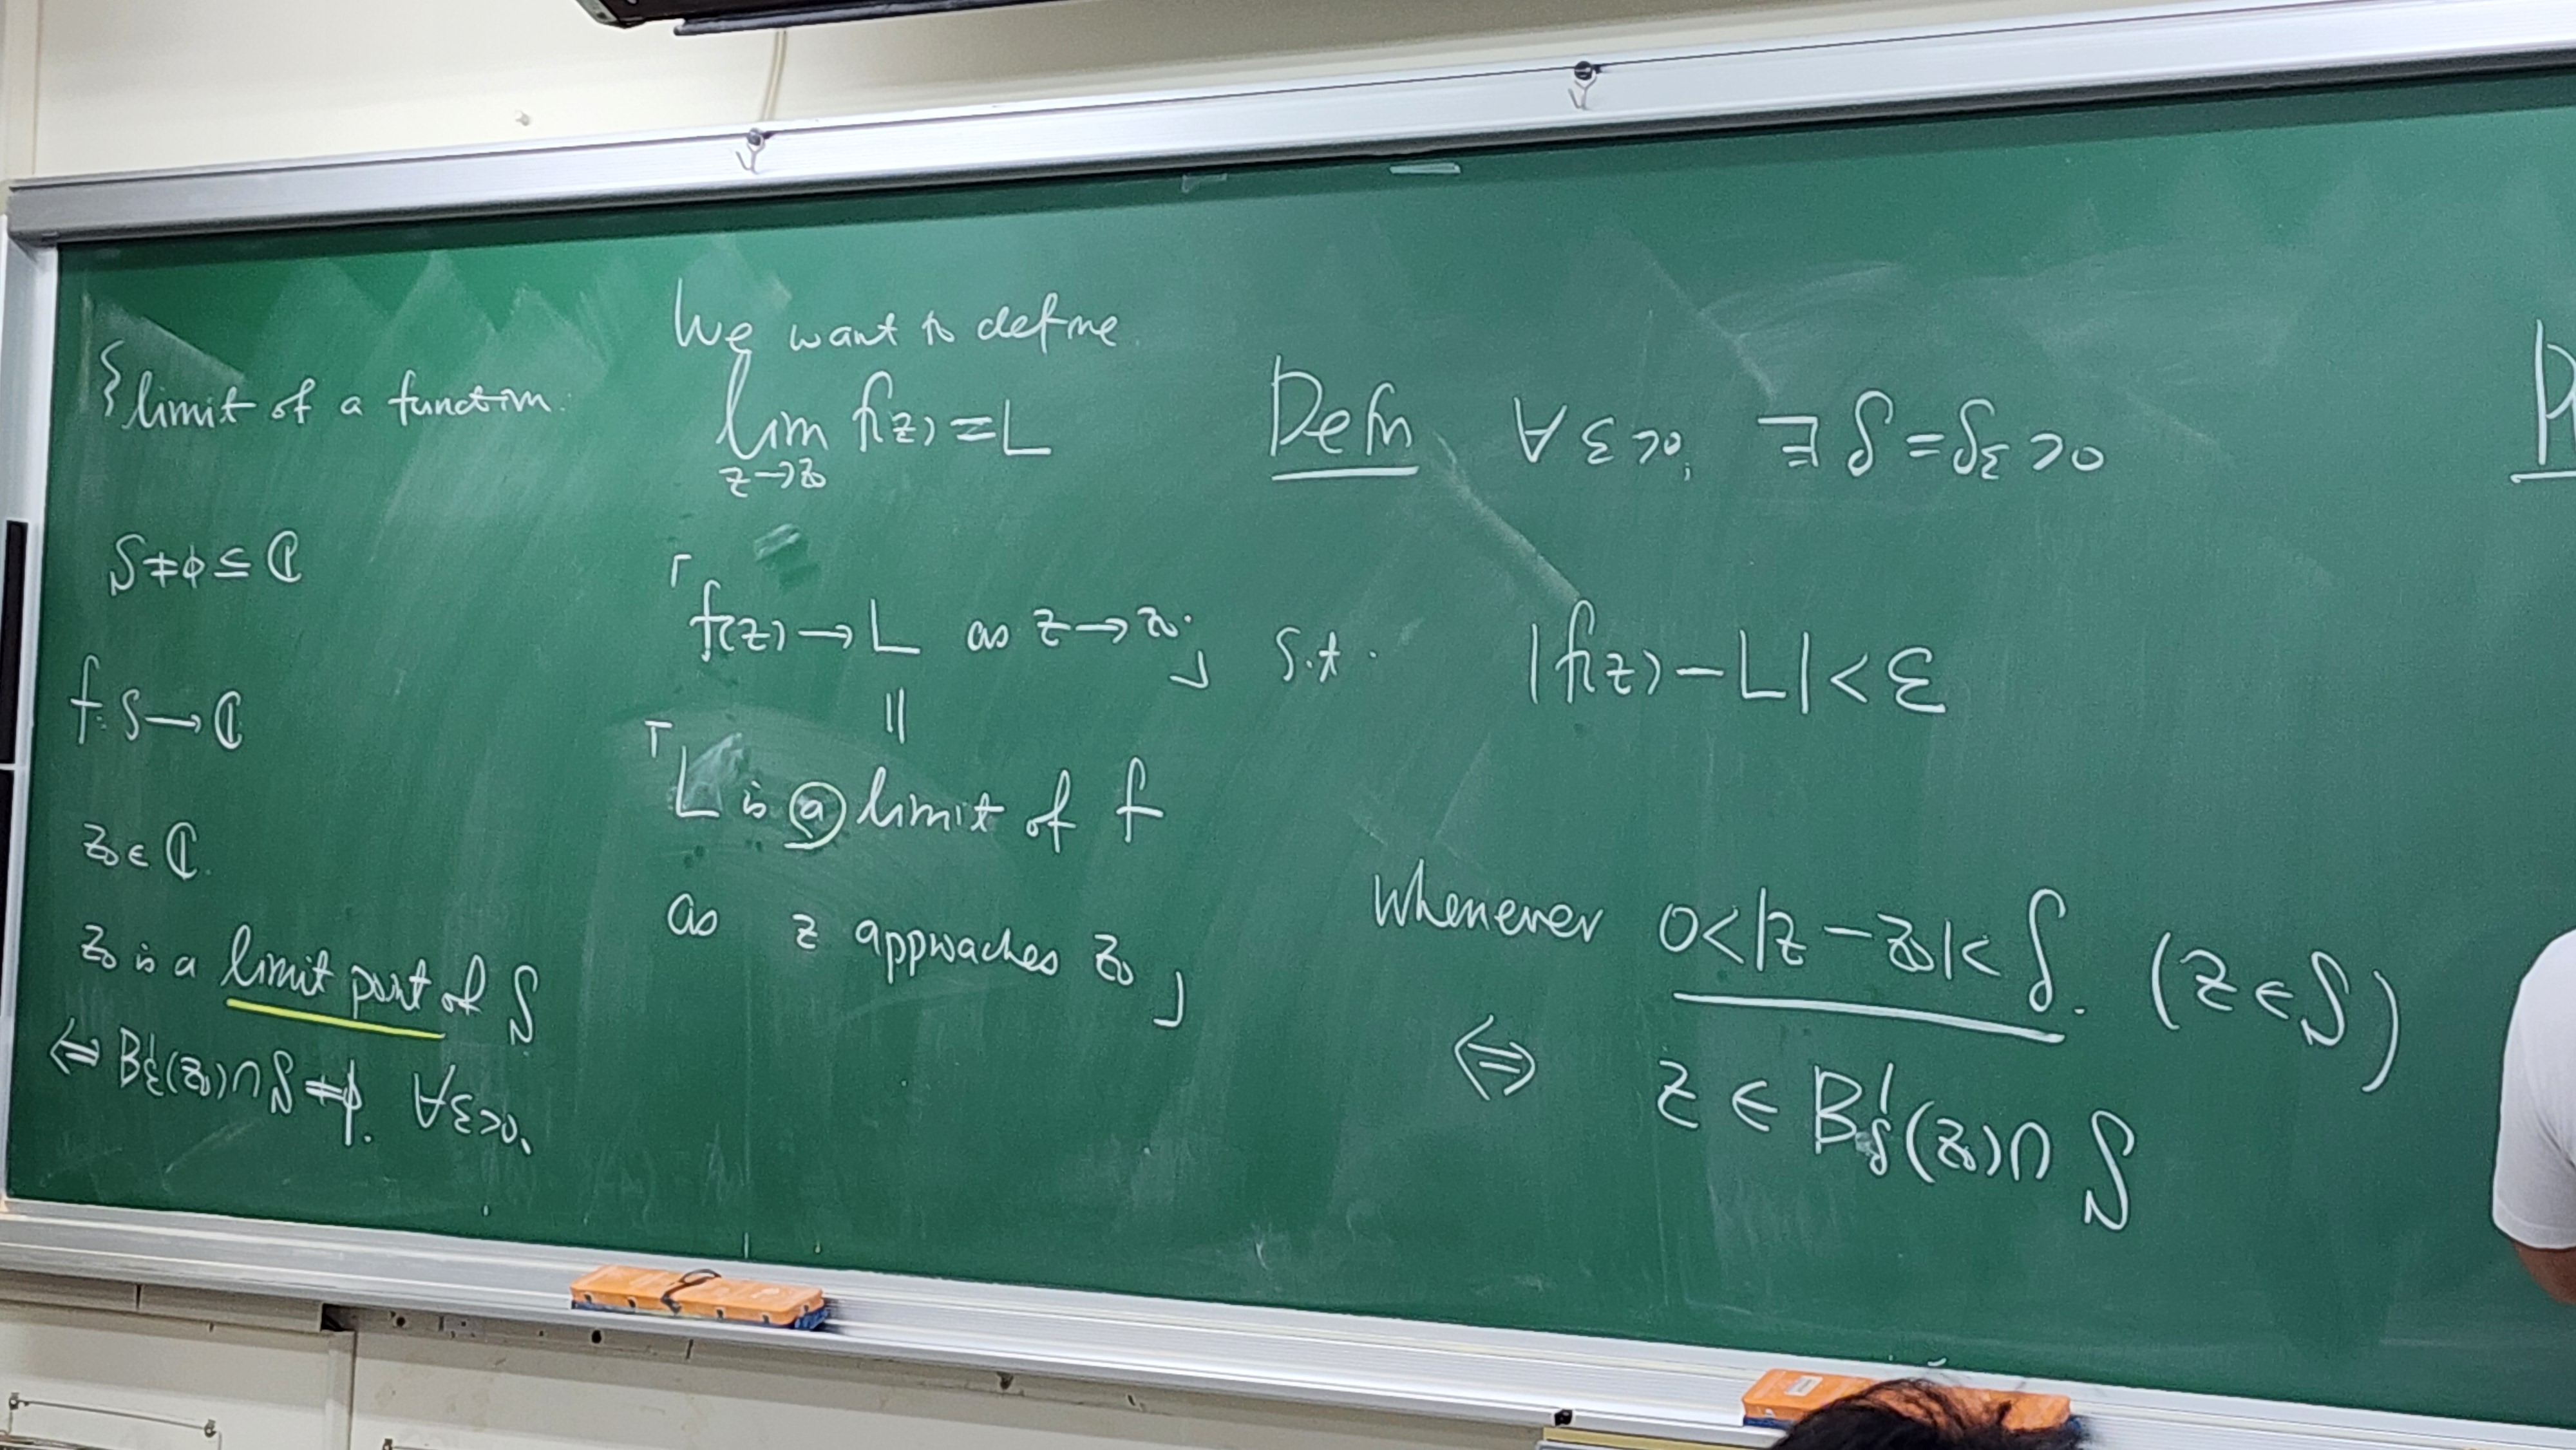 § limit of a function.
S ≠ φ ⊆ ℂ
f: S → ℂ
z₀ ∈ ℂ.
z₀ is a limit point of S
⇔ B'ε(z₀) ∩ S ≠ φ. ∀ε>0.
We want to define
lim f(z) = L
z→z₀
「f(z) → L as z → z₀.」
||
「L is ⓐ limit of f
as z approaches z₀」
Defn ∀ ε>0, ∃ δ = δε > 0
s.t. |f(z) − L| < ε
whenever 0 < |z − z₀| < δ. (z ∈ S)
⇔ z ∈ B'δ(z₀) ∩ S